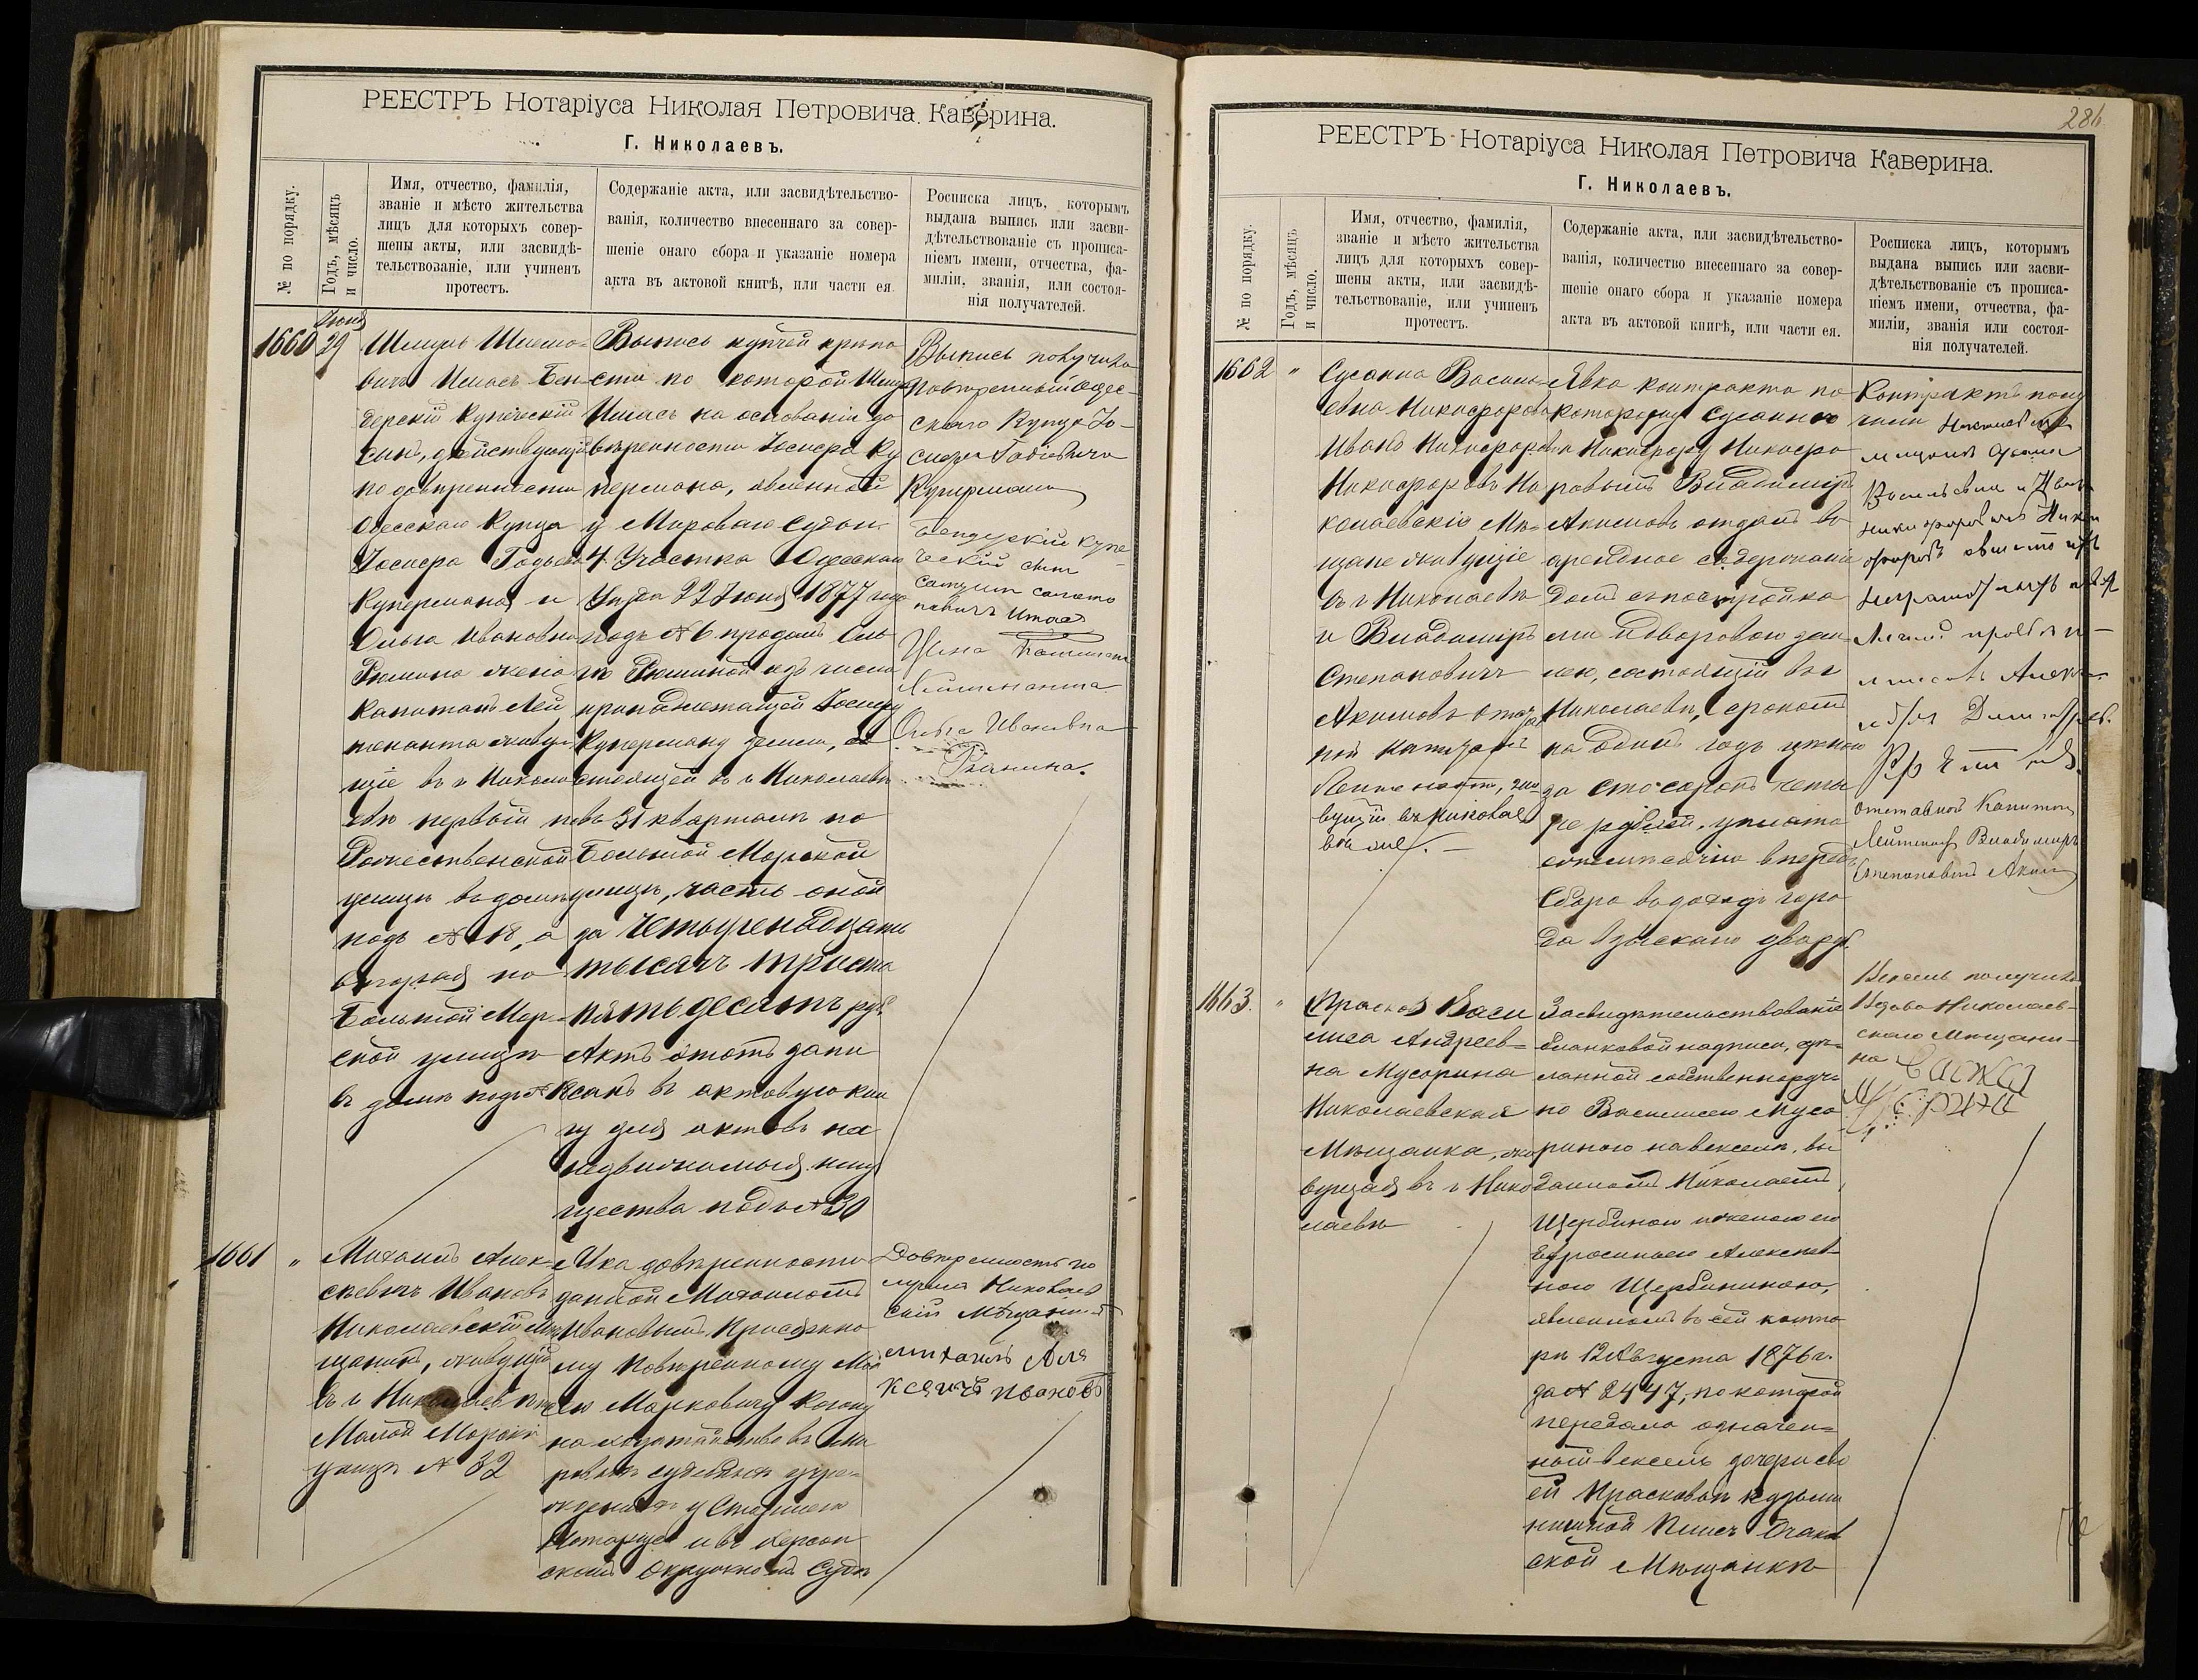 РЕЕСТРЪ Нотаріуса Николая Петровича Каверина.
Г. Николаевъ.
№ по порядку.
Годъ, мѣсяцъ
и число.
Имя, отчество, фамилія,
званіе и мѣсто жительства
лицъ для которыхъ совер-
шены акты, или засвидѣ-
тельствованіе, или учиненъ
протестъ.
Содержаніе акта, или засвидѣтельство-
ванія, количество внесеннаго за совер-
шеніе онаго сбора и указаніе номера
акта въ актовой книгѣ, или части ея.
Росписка лицъ, которымъ
выдана выпись или засви-
дѣтельствованіе съ прописа-
ніемъ имени, отчества, фа-
миліи, званія, или состоя-
нія получателей.
1660
Іюня
29
Бен-
дерскій Купеческій
сынъ, дѣйствующій
по довѣренности
Одесскаго Купца
Іосифа
Купермана и
Ольга Ивановна
Рюмина жена
Капитанъ Лей
тенанта живу
щіе въ г. Никола
евѣ первый по
Рождественской
улицѣ въ домѣ
подъ № 18, а
вторая по
Большой Мор-
ской улицѣ
въ домѣ подъ №
Выпись купчей крѣпо
сти по которой
на основаніи до
вѣренности Іосифа Ку
пермана, явленной
у Мироваго Судьи
4 Участка Одесскаго
22 Іюня 1877 года
подъ № 6 продалъ Оль
гѣ Рюминой изъ числа
принадлежащей Іосифу
Куперману земли, со
стоящей въ г. Николаевѣ
въ 31 кварталѣ по
Большой Морской
улицѣ, часть оной
за четырнадцать
тысячъ триста
пятьдесятъ руб.
Актъ этотъ запи
санъ въ актовую кни
гу для актовъ на
недвижимыя иму
щества подъ № 30
Выпись получили
повѣренный Одес-
скаго Купца Іо-
сифа
Купермана
Бендерскій купе-
ческій сынъ
Жена Капитанъ
Лейтенанта
Ольга Ивановна
Рюмина.
1661
"
Михаилъ Алек-
сѣевичъ Ивановъ
Николаевскій мѣ
щанинъ, живущій
въ г. Николаевѣ по
Малой Морской
улицѣ № 32
Явка довѣренности
данной Михаиломъ
Ивановымъ Присяжно
му Повѣренному Мои
сею Марковичу Когону
на ходатайство въ Ми
ровыхъ судебныхъ учре-
жденіяхъ у Старшаго
Нотаріуса и въ Херсон
скомъ Окружномъ Судѣ
Довѣренность по
лучилъ Николаев
скій Мѣщанинъ
Михаилъ Але
ксѣичъ Ивановъ
286
РЕЕСТРЪ Нотаріуса Николая Петровича Каверина.
Г. Николаевъ.
№ по порядку.
Годъ, мѣсяцъ
и число.
Имя, отчество, фамилія,
званіе и мѣсто жительства
лицъ для которыхъ совер-
шены акты, или засвидѣ-
тельствованіе, или учиненъ
протестъ.
Содержаніе акта, или засвидѣтельство-
ванія, количество внесеннаго за совер-
шеніе онаго сбора и указаніе номера
акта въ актовой книгѣ, или части ея.
Росписка лицъ, которымъ
выдана выпись или засви-
дѣтельствованіе съ прописа-
ніемъ имени, отчества, фа-
миліи, званія или состоя-
нія получателей.
1662
"
Сусанна Василь
евна Никифорова
Иванъ Никифоровичъ
Никифоровъ Ни
колаевскіе Мѣ-
щане живущіе
въ г. Николаевѣ
и Владиміръ
Степановичъ
Акимовъ отстав
ной Капитанъ
Лейтенантъ, жи
вущій въ Николае
вѣ
Явка контракта по
которому Сусаннѣ
и Никифору Никифо
ровымъ Владиміръ
Акимовъ отдалъ въ
арендное содержаніе
домъ съ постройка
ми и дворовою зем
лею, состоящій въ г.
Николаевѣ, срокомъ
на одинъ годъ цѣною
за сто сорокъ четы
ре рублей, уплата
ежемѣсячно впередъ,
Сбора въ доходъ горо
да взыскано два руб.
Контрактъ полу
чили Николаевскіе
мѣщане
Васильевна и Иванъ
Никифоровичъ Ники
форовъ
отставной Капитанъ
Лейтенантъ Владиміръ
Степановичъ Акимовъ
1663.
"
Васи
лиса Андреев-
на Мусорина
Николаевская
Мѣщанка, жи
вущая въ г. Нико
лаевѣ
Засвидѣтельствованіе
бланковой надписи, сдѣ
ланной собственноручн
но Василисею Мусо
риною на векселѣ, вы
данномъ Николаемъ
Щербиною и женою его
Ефросиньею Алексѣев-
ною Щербининою,
явленномъ въ сей конто
рѣ 12 Августа 1876 г.
за № 2447, по которой
передала означен-
ный вексель дочери сво
ей Прасковьѣ Кузьми
нишной Очаков
ской Мѣщанкѣ
Вексель получила
Вдова Николаев-
скаго Мѣщани-
на